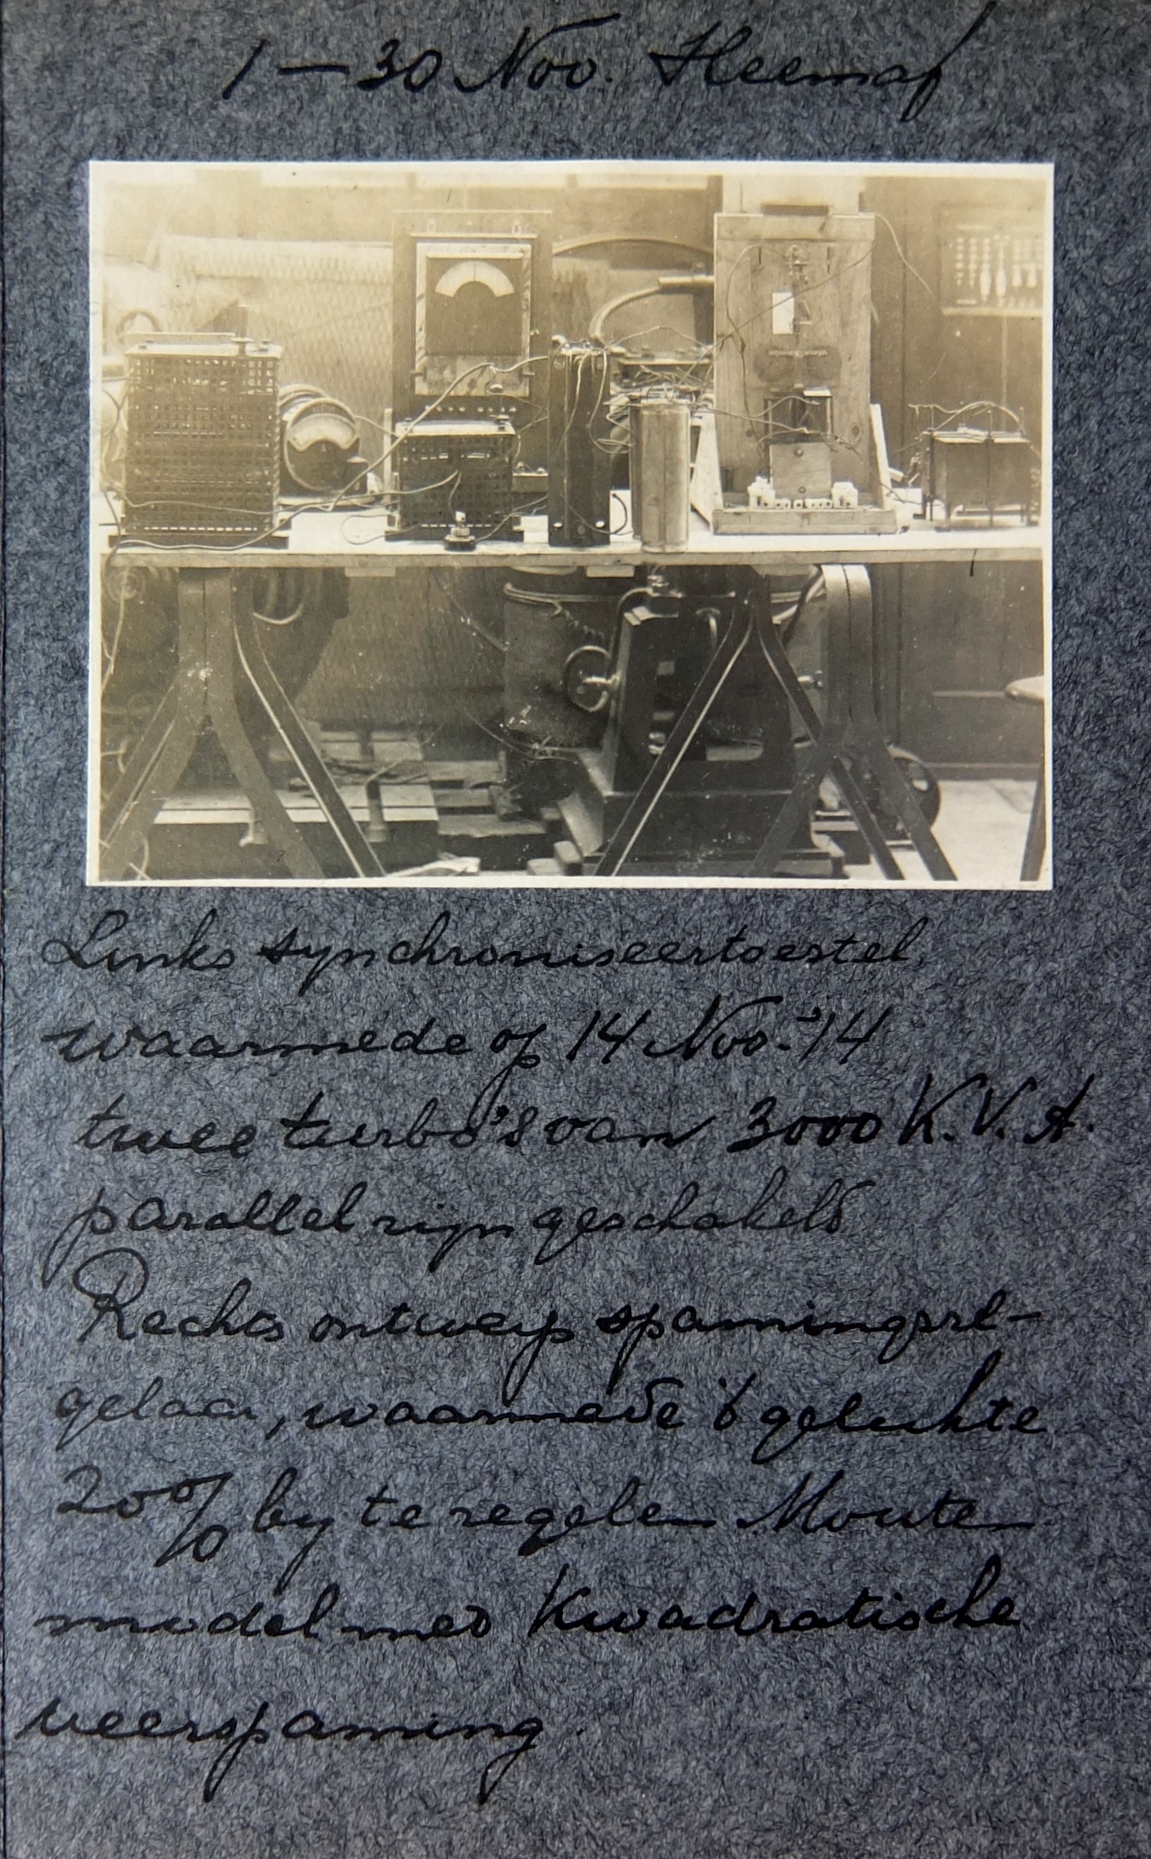 1 — 30 Nov. Heemaf
Links synchroniseertoestel,
waarmede op 14 Nov. '14
twee turbo's van 3000 K.V.A.
parallel zijn geschakeld
Rechts ontwerp spanningsre-
gelaar, waarmede 't gelukte
20% by te regelen. Houten
model met Kwadratische
veerspanning.